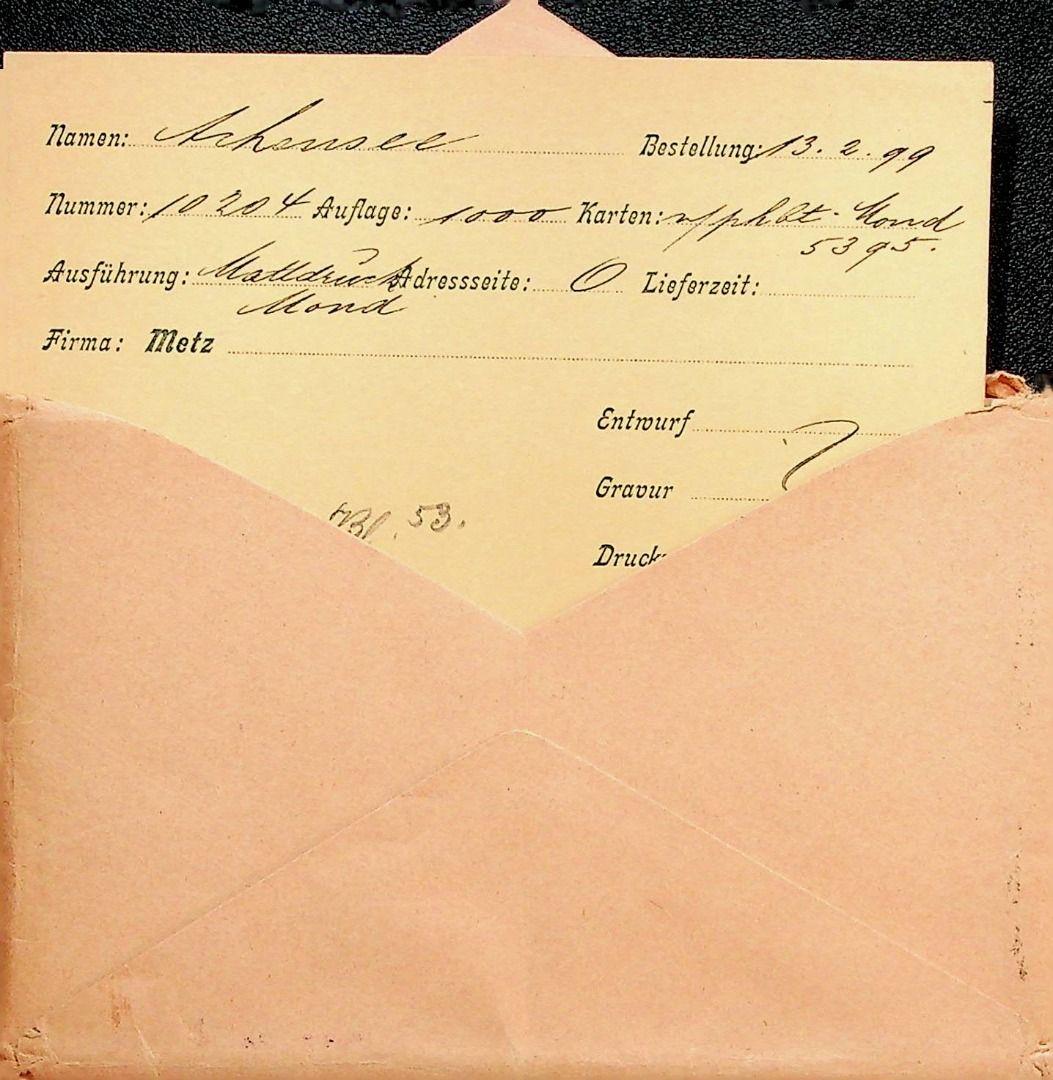 Namen: Achensee Bestellung: 13. 2. 99
Nummer: 10204 Auflage: 1000 Karten: Mond
5395.
Ausführung: Mattdruck Adressseite: 0 Lieferzeit:
Mond
Firma: Metz
Entwurf
Gravur
Bl. 53.
Druck